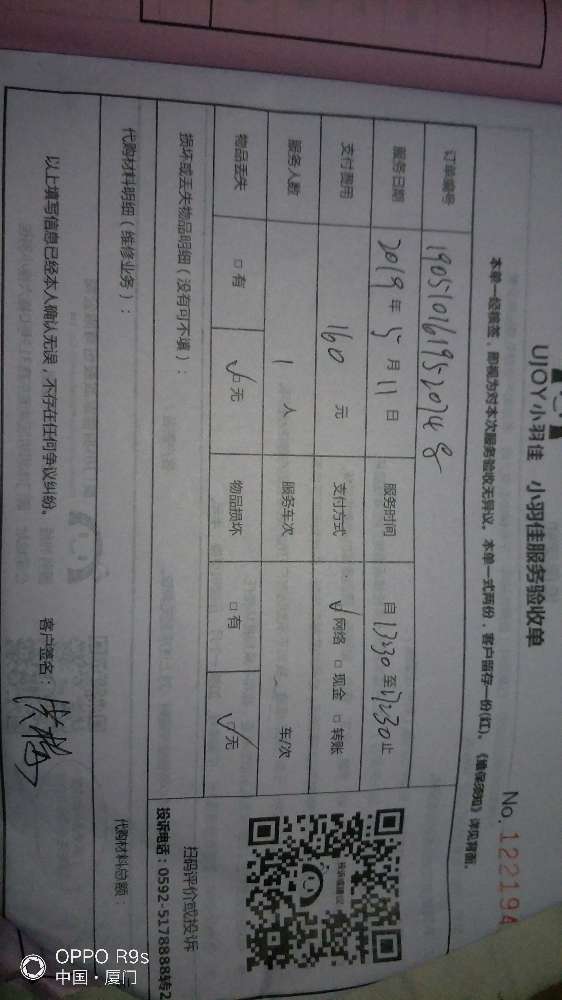 UJOY小羽佳 小羽佳服务验收单
No. 122194
本单一经核签，即视为对本次服务验收无异议。本单一式两份，客户留存一份(红)。《维保须知》详见背面。
订单编号 190510161952074 8
服务日期 2019 年 5 月 11 日 服务时间 自 13:30 至 17:30 止
支付费用 160 元 支付方式 √ 网络 □ 现金 □ 转账
服务人数 1 人 服务车次 车/次
物品丢失 □ 有 √□ 无 物品损坏 □ 有 √□ 无
投诉或建议
扫码评价或投诉
投诉电话：0592-5178888转2
损坏或丢失物品明细（没有可不填）：
代购材料明细（维修业务）： 代购材料总额：
以上填写信息已经本人确认无误，不存在任何争议纠纷。 客户签名：
OPPO R9s
中国·厦门